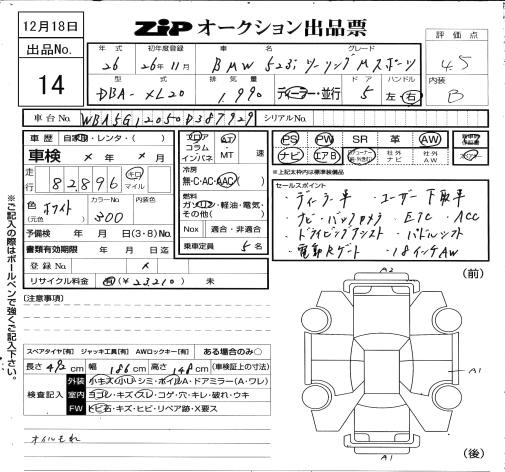 12月18日
ZIP オークション出品票
出品No.
14
評価点
4.5
内装
B
年式 初年度登録 車名 グレード
26 26年11月 BMW 523i ツーリング Mスポーツ
型式 排気量 ドア ハンドル
DBA-XL20 1,990 ディーラー・並行 5 左・右
車台No. WBA5G12050D387929 シリアルNo.
車歴 自家用・レンタ・( )
車検 × 年 × 月
走行 82896 キロ マイル
色(元色) ホワイト カラーNo. 300 内装色
予備検 年 月 日(3・8)No.
書類有効期限 年 月 日迄
登録No. ×
リサイクル料金 有(¥23,210) 未
フロア コラム インパネ
AT MT 速
冷房
無・C・AC・AAC
燃料
ガソリン・軽油・電気・その他( )
Nox 適合・非適合
乗車定員 5名
PS PW SR 革 AW
ナビ エアB 社外ナビ 社外AW
※上記太枠内は標準装備品
セールスポイント
・ディーラー車 ・ユーザー下取車
・ナビ・バックカメラ ETC ACC
・ドライビングアシスト ・パドルシフト
・電動Rゲート ・18インチAW
【注意事項】
スペアタイヤ[有] ジャッキ工具[有] AWロックキー[有] ある場合のみ○
長さ 492 cm 幅 186 cm 高さ 148 cm (車検証上の寸法)
検査記入
外装 小キズ・小U・シミ・ホイルA・ドアミラー(A・ワレ)
室内 ヨゴレ・キズ・スレ・コゲ・穴・キレ・破れ・ウキ
FW トビ石・キズ・ヒビ・リペア跡・X要ス
オイルもれ
(前)
A2
A1
A1
(後)
※ご記入の際はボールペンで強くご記入下さい。